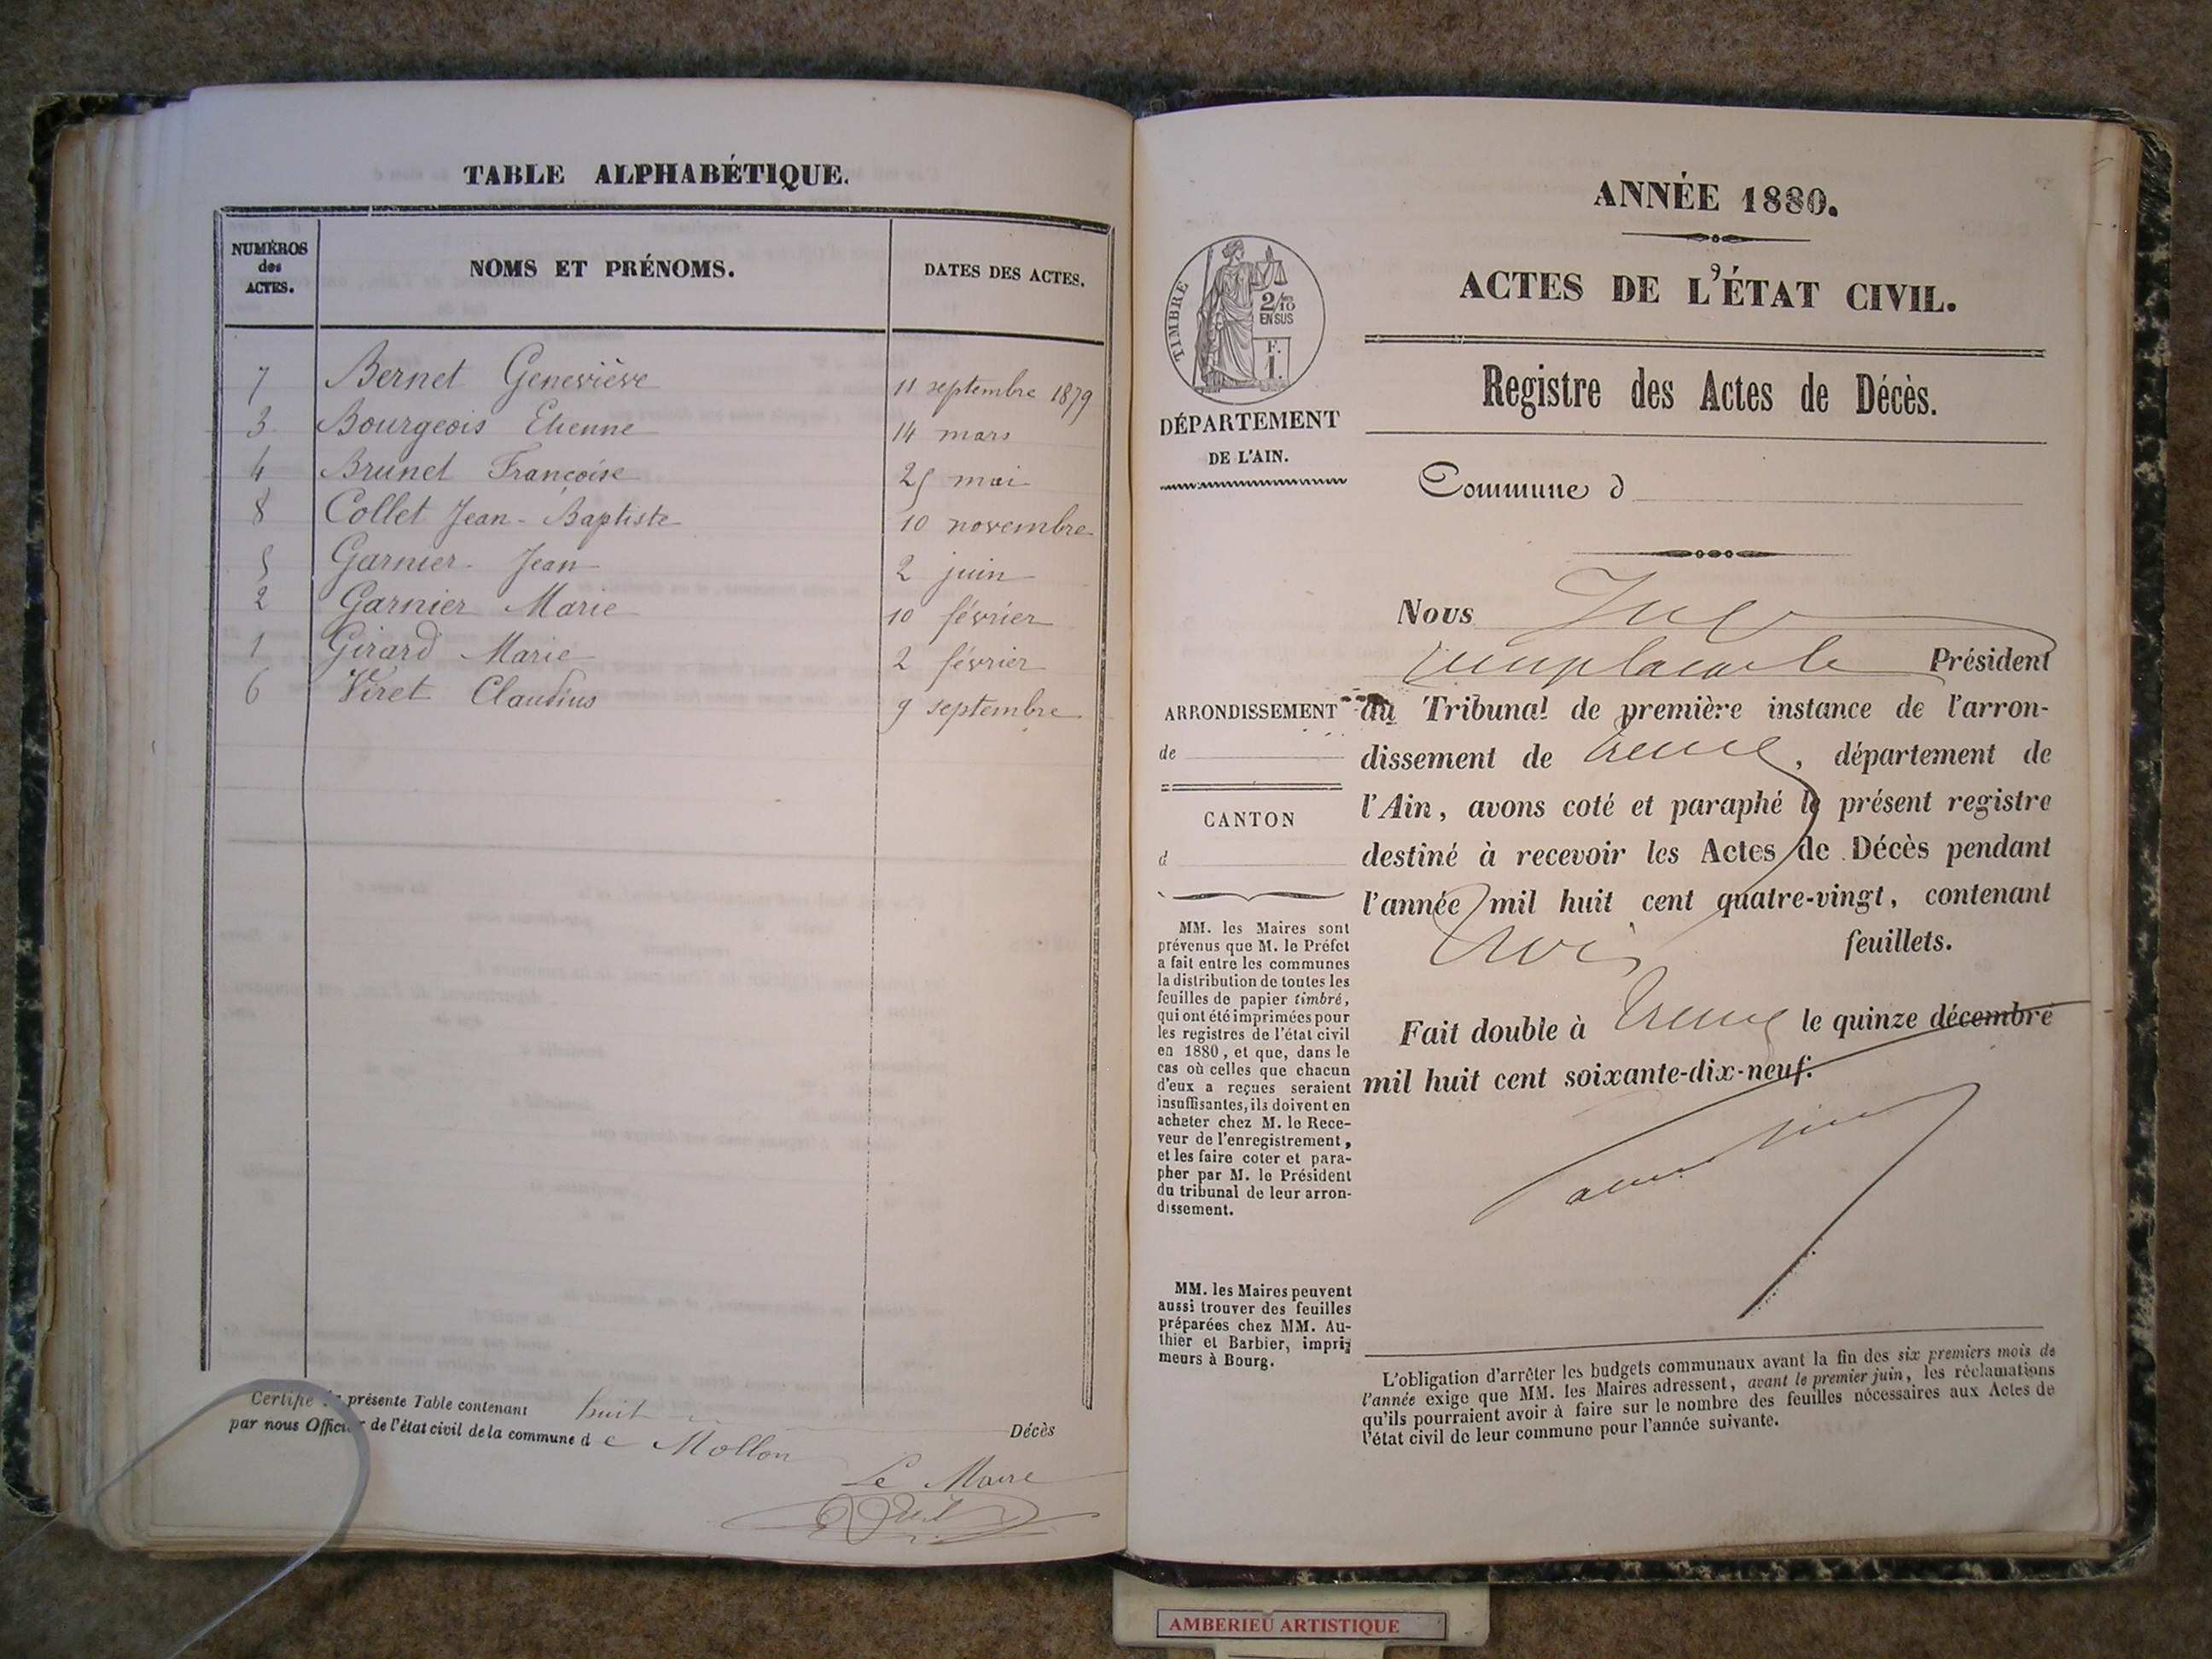 TABLE ALPHABÉTIQUE.
NUMÉROS
des
ACTES.
NOMS ET PRÉNOMS.
DATES DES ACTES.
7 Bernet Geneviève 11 septembre 1879
3 Bourgeois Etienne 14 mars
4 Brunet Françoise 25 mai
8 Collet Jean-Baptiste 10 novembre
5 Garnier Jean 2 juin
2 Garnier Marie 10 février
1 Girard Marie 2 février
6 Viret Claudius 9 septembre
Certifié la présente Table contenant huit Décès
par nous Officier de l'état civil de la commune de Mollon
Le Maire
ANNÉE 1880.
ACTES DE L'ÉTAT CIVIL.
Registre des Actes de Décès.
Commune d
TIMBRE
2/10
EN SUS
F.
1.
DÉPARTEMENT
DE L'AIN.
ARRONDISSEMENT
de
CANTON
d
MM. les Maires sont
prévenus que M. le Préfet
a fait entre les communes
la distribution de toutes les
feuilles de papier timbré,
qui ont été imprimées pour
les registres de l'état civil
en 1880, et que, dans le
cas où celles que chacun
d'eux a reçues seraient
insuffisantes, ils doivent en
acheter chez M. le Rece-
veur de l'enregistrement,
et les faire coter et para-
pher par M. le Président
du tribunal de leur arron-
dissement.
MM. les Maires peuvent
aussi trouver des feuilles
préparées chez MM. Au-
thier et Barbier, impri-
meurs à Bourg.
Nous Juge
remplaçant le Président
du Tribunal de première instance de l'arron-
dissement de Trévoux, département de
l'Ain, avons coté et paraphé le présent registre
destiné à recevoir les Actes de Décès pendant
l'année mil huit cent quatre-vingt, contenant
trois feuillets.
Fait double à Trévoux le quinze décembre
mil huit cent soixante-dix-neuf.
L'obligation d'arrêter les budgets communaux avant la fin des six premiers mois de
l'année exige que MM. les Maires adressent, avant le premier juin, les réclamations
qu'ils pourraient avoir à faire sur le nombre des feuilles nécessaires aux Actes de
l'état civil de leur commune pour l'année suivante.
AMBERIEU ARTISTIQUE